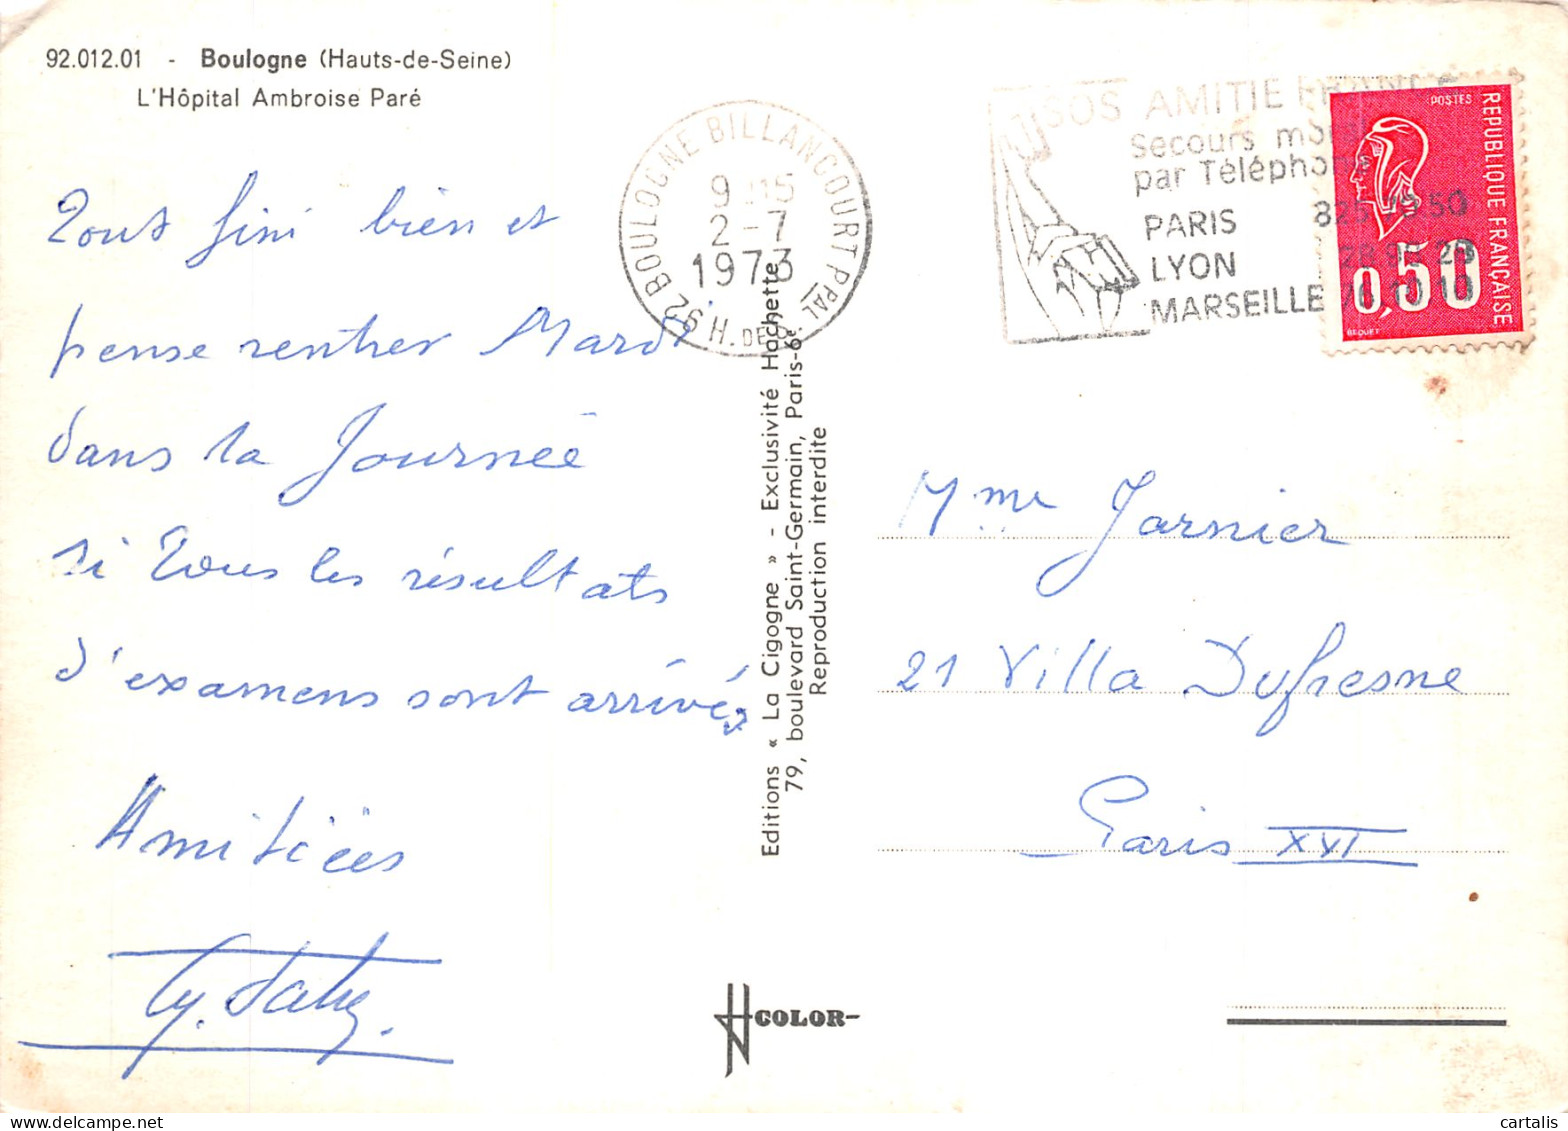 92.012.01 - Boulogne (Hauts-de-Seine)
L'Hôpital Ambroise Paré
Tout fini bien et
pense rentrer Mardi
dans la Journée
si Tous les résultats
d'examens sont arrivés
Amitiées
Editions « La Cigogne » - Exclusivité Hachette
79, boulevard Saint-Germain, Paris-6e.
Reproduction interdite
92 BOULOGNE BILLANCOURT PPAL
H. DE S.
9 H15
2-7
1973
SOS AMITIE FRANCE
Secours moral
par Téléphone
PARIS 825 70 50
LYON
MARSEILLE
POSTES
REPUBLIQUE FRANÇAISE
0,50
BEQUET
Mme Jarnier
21 Villa Dufresne
Paris XVI
COLOR
cartalis
www.delcampe.net